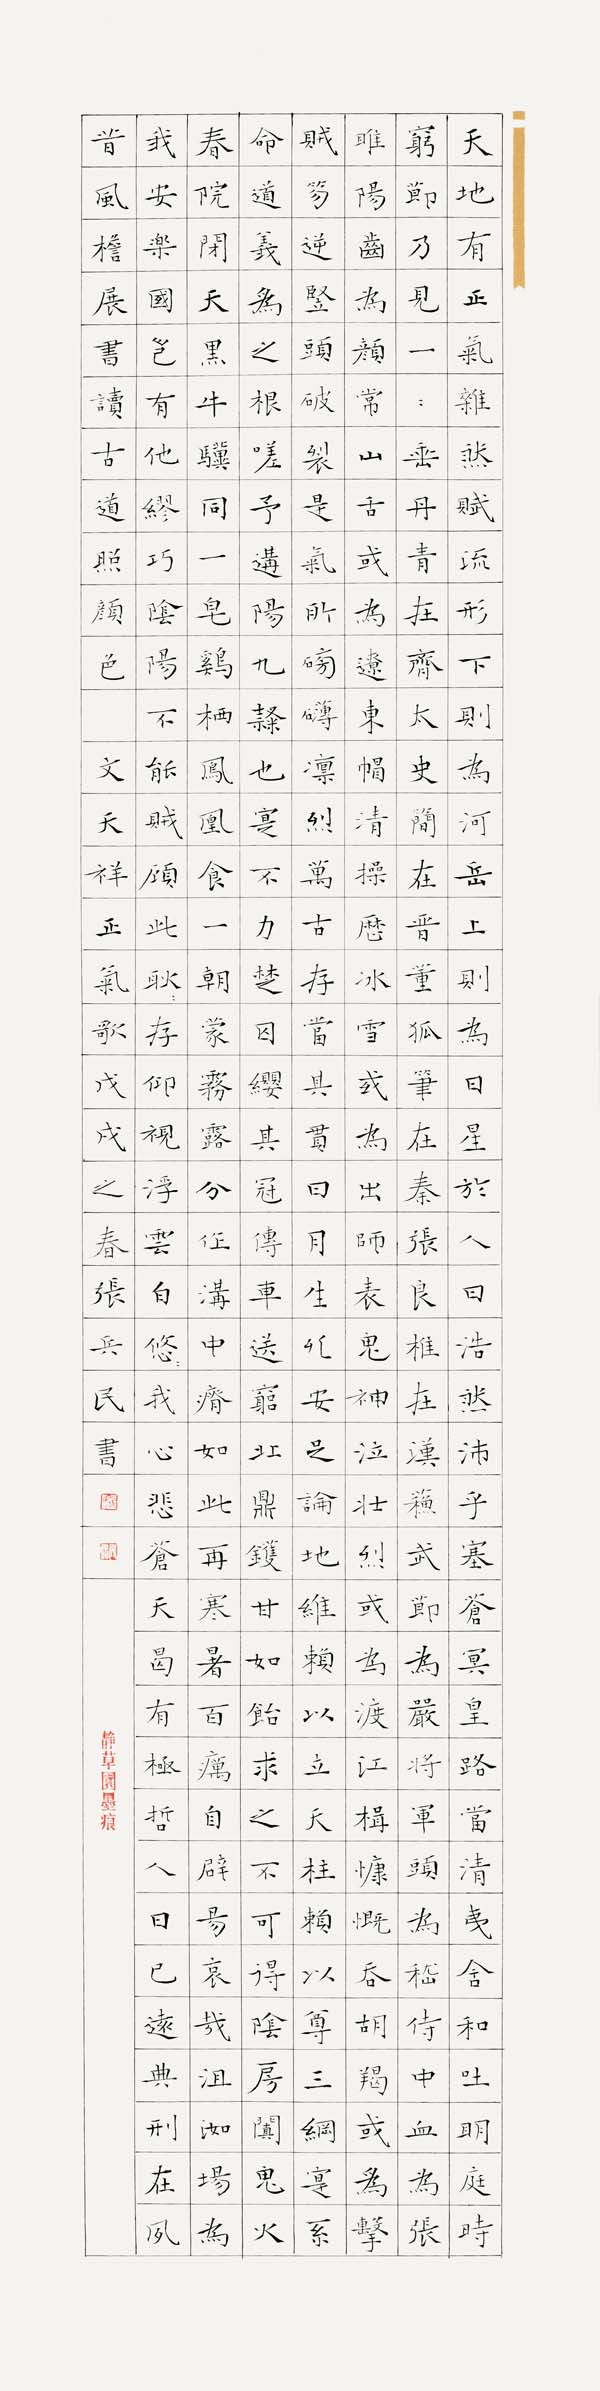 天地有正氣雜然賦流形下則為河岳上則為日星於人曰浩然沛乎塞蒼冥皇路當清夷含和吐明庭時
窮節乃見一：垂丹青在齊太史簡在晉董狐筆在秦張良椎在漢蘇武節為嚴將軍頭為嵇侍中血為張
睢陽齒為顏常山舌或為遼東帽清操歷冰雪或為出師表鬼神泣壯烈或為渡江楫慷慨吞胡羯或為擊
賊笏逆豎頭破裂是氣所磅礴凜烈萬古存當其貫日月生死安足論地維賴以立天柱賴以尊三綱寔系
命道義為之根嗟予遘陽九隸也寔不力楚囚纓其冠傳車送窮北鼎鑊甘如飴求之不可得陰房闃鬼火
春院閉天黑牛驥同一皂鷄栖鳳凰食一朝蒙霧露分作溝中瘠如此再寒暑百癘自辟易哀哉沮洳場為
我安樂國豈有他繆巧陰陽不能賊顧此耿：存仰視浮雲白悠：我心悲蒼天曷有極哲人日已遠典刑在夙
昔風檐展書讀古道照顏色 文天祥正氣歌戊戌之春張兵民書
靜草園墨痕